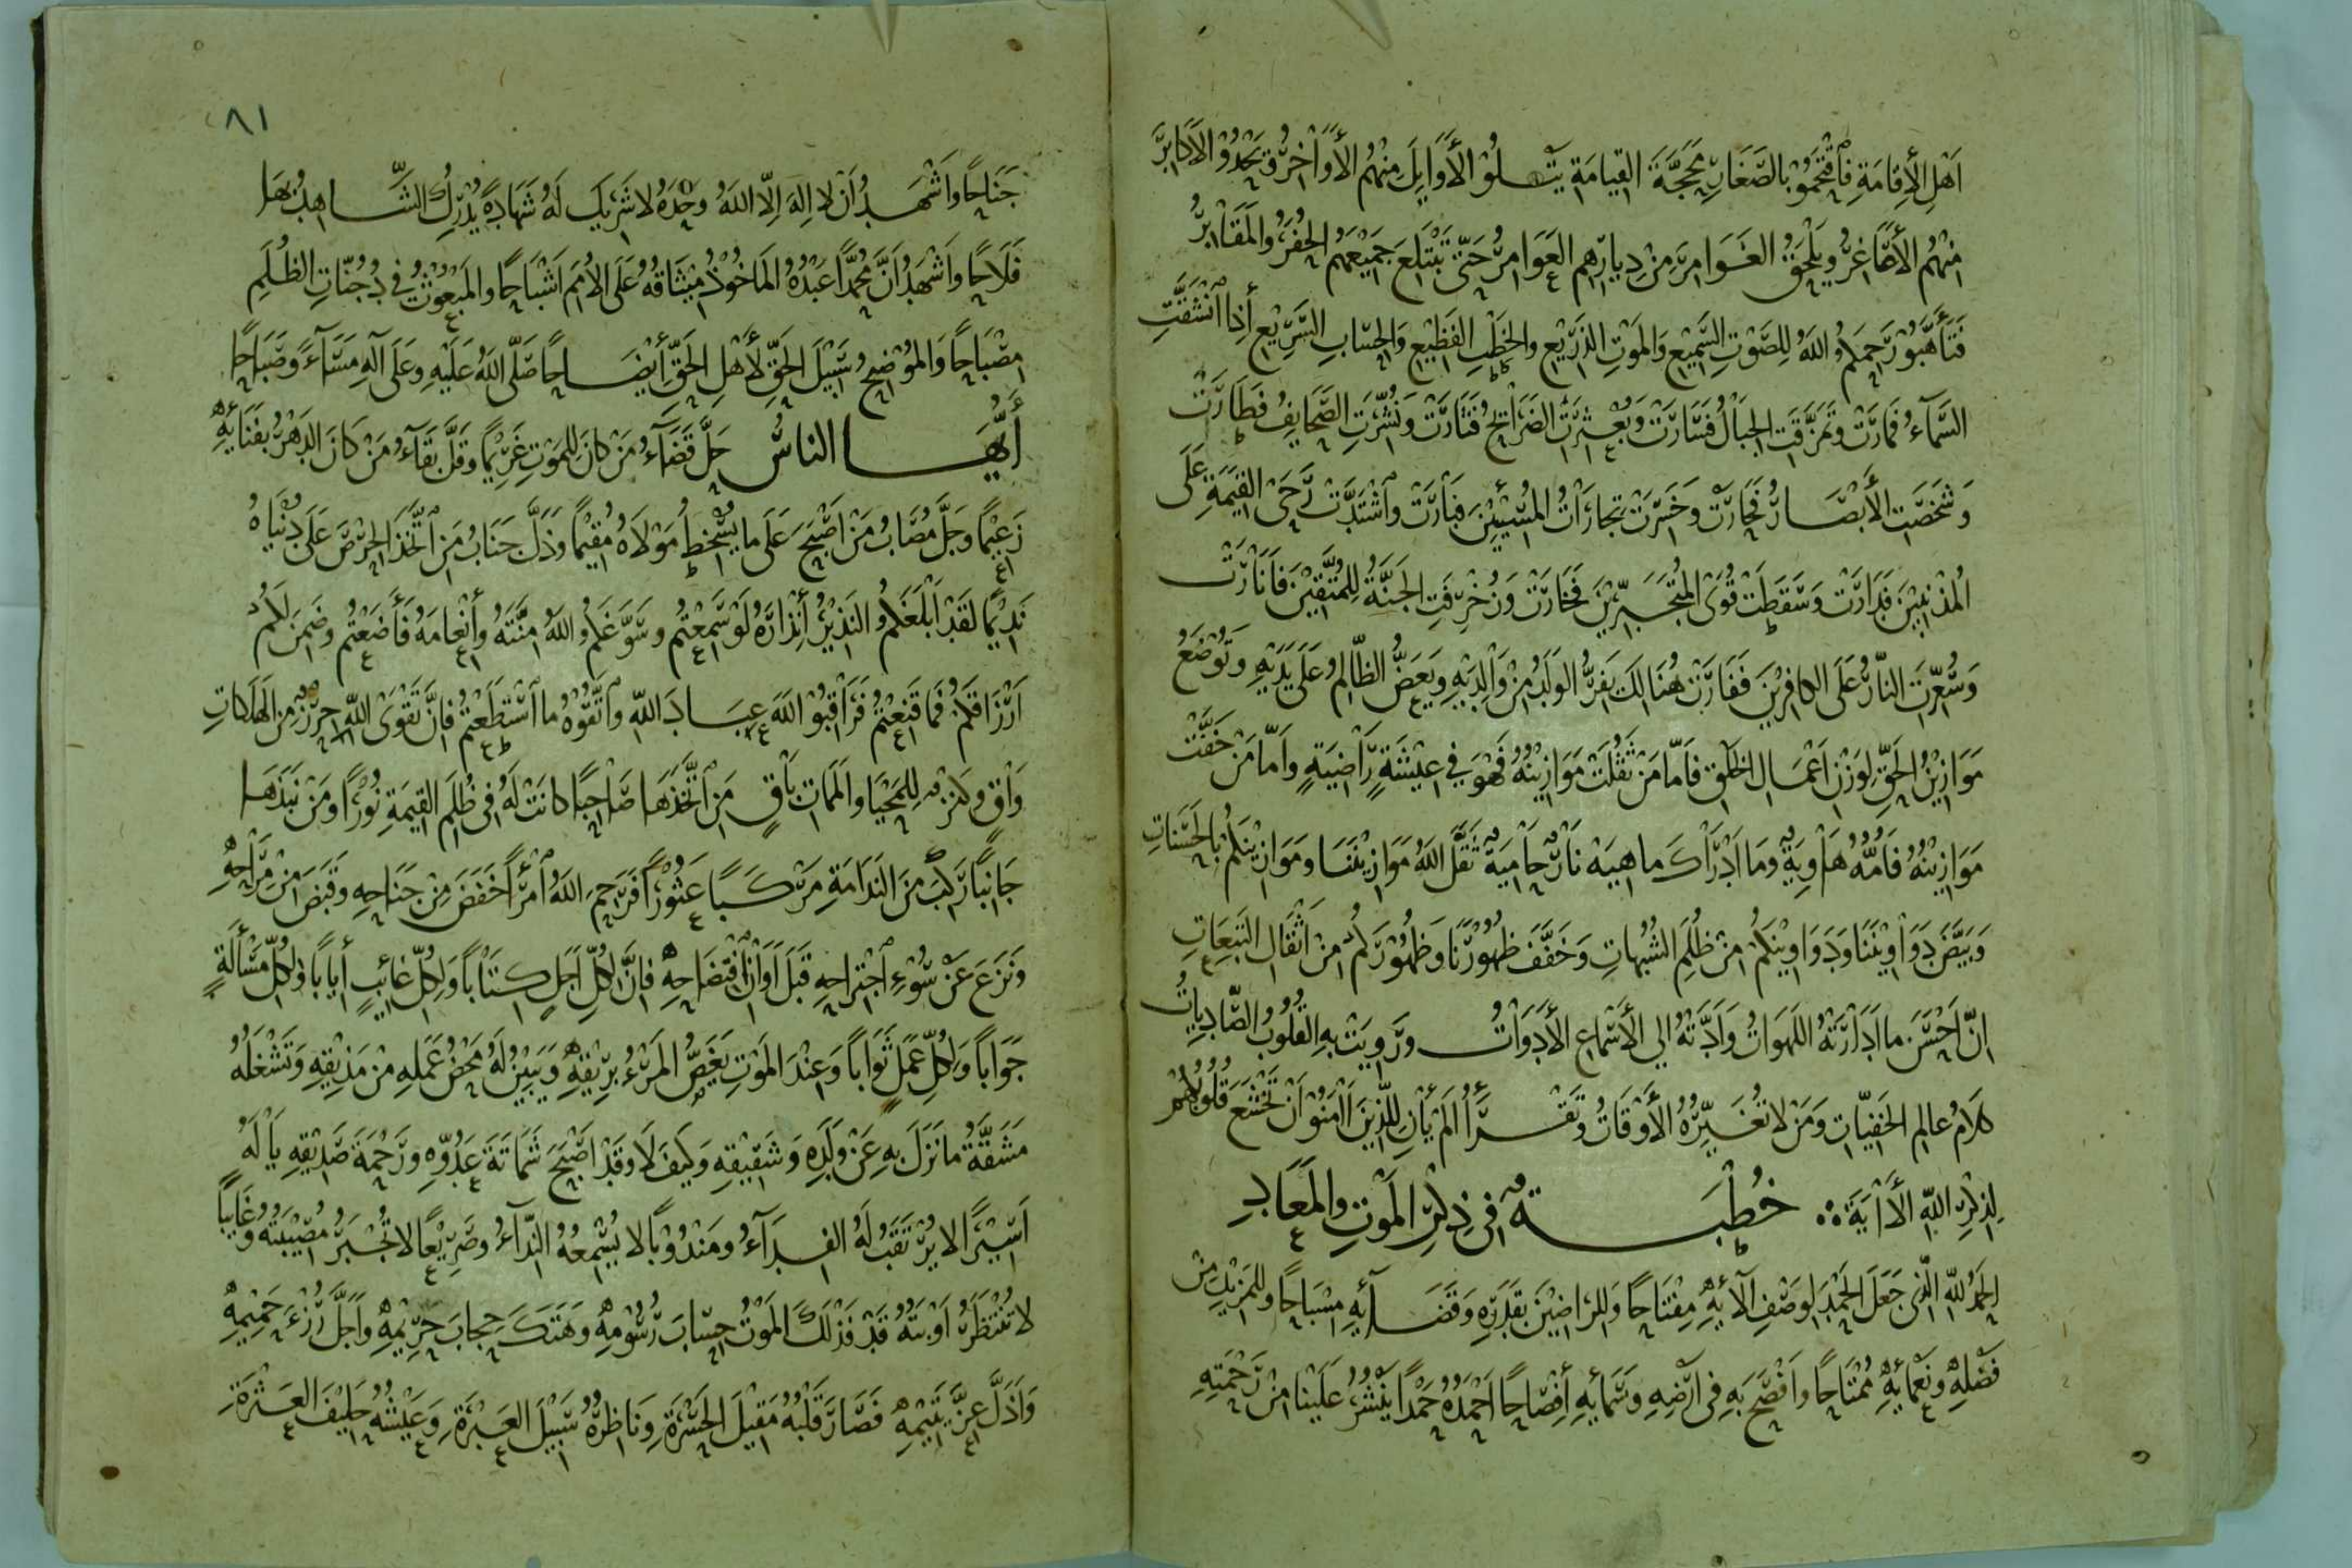 اَهْلِ الْاِقامَةِ فَاقْتَحَمُوْا بِالصَّغَارِ مَحَجَّةَ القِيامَةِ يَتْلُوْ الْأَوَايِلَ مِنْهُمُ الْأَوَاخِرُ وَيَحْدُوْ الْاَكابِرَ
مِنْهُمُ الْأَصَاغِرُ وَيَلْحَقُ الغَوَامِرَ مِنْ دِيارِهِمِ العَوَامِرُ حَتَّى تَبْتَلِعَ جَمِيْعَهُم الحُفَرُ وَالمَقَابِرُ
فَتَأَهَّبُوْا رَحِمَكُمُ اللهُ لِلصَّوْتِ السَّمِيْعِ وَالمَوْتِ الذَّرِيْعِ والخَطْبِ الفَظِيْعِ وَالحِسَابِ السَّرِيْعِ إِذا انْشَقَّتِ
السَّمآءُ فَمَارَتْ وتَمَزَّقَتِ الجِبَالُ فَسَارَتْ وَبُعْثِرَتِ الضَّرَائِحُ فَثَارَتْ وَنُشِّرَتِ الصَّحَايِفُ فَطَارَتْ
وَشَخَصَتِ الْأَبْصَارُ فَحَارَتْ وَخَسِرَتْ تِجارَاتُ المُسِيْئِيْنَ فَبَارَتْ وَاشْتَدَّتْ رَحَى القِيمَةِ عَلَى
المُذْنِبِيْنَ فَدَارَتْ وَسَقَطَتْ قُوَى المُتَجَبِّرِيْنَ فَخَارَتْ وَزُخْرِفَتِ الجَنَّةُ لِلْمُتَّقِيْنَ فَاَنَارَتْ
وَسُعِّرَتِ النَّارُ عَلَى الكافِرِيْنَ فَفَارَتْ هُنَالِكَ يَفِرُّ الوَلَدُ مِنْ وَالِدَيْهِ وَيَعَضُّ الظَّالِمُ عَلَى يَدَيْهِ وَتُوْضَعُ
مَوَازِيْنُ الحَقِّ لِوَزْنِ اَعْمَالِ الخَلْقِ فَاَمَّا مَنْ ثَقُلَتْ مَوَازِيْنُهُ فَهُوَ فِي عِيْشَةٍ رَاضِيَةٍ وَاَمَّا مَنْ خَفَّتْ
مَوَازِيْنُهُ فَاُمُّهُ هَاوِيَةٌ وَمَا اَدْرَاكَ ماهِيَه نَارٌ حَامِيَةٌ ثَقَّلَ اللهُ مَوَازِيْنَنَا ومَوَازِيْنَكُمْ بِالحَسَناتِ
وَبَيَّضَ دَوَاوِيْنَنَا وَدَوَاوِيْنَكُمْ مِنْ ظُلَمِ الشُّبُهاتِ وَخَفَّفَ ظُهُوْرَنَا وَظُهُوْرَكُمْ مِنْ اَثْقَالِ التَّبِعَاتِ
اِنَّ اَحْسَنَ ما اَدَارَتْهُ اللَّهَوَاتُ وَاَدَّتْهُ الي الْأَسْمَاعِ الْأَدَوَاتُ وَرَوِيَتْ بِهِ القُلُوبُ الصَّادِيَاتُ
كَلَامُ عالِمِ الخَفِيَّاتِ وَمَنْ لا تُغَيِّرُهُ الْأَوْقَاتُ وَتَقْرَأُ اَلَمْ يَأْنِ لِلَّذِيْنَ اٰمَنُوْا اَنْ تَخْشَعَ قُلُوْبُهُمْ
لِذِكْرِ اللهِ الْاٰيَةَ ؞ خُطْبَةٌ فِي ذِكْرِ المَوْتِ وَالمَعَادِ
الحَمْدُ لِلّٰهِ الَّذِي جَعَلَ الحَمْدَ لِوَصْفِ آلائِهِ مِفْتَاحًا وَلِلرَاضِيْنَ بِقَدَرِهِ وَقَضَائِهِ مِسْبَاحًا وَلِلْمَزِيْدِ مِنْ
فَضْلِهِ وَنَعْمَائِهِ مُمْتَاحًا وَاَفْصَحَ بِهِ فِي اَرْضِهِ وَسَمَائِهِ اِفْصَاحًا اَحْمَدُهُ حَمْدًا يَنْشُرُ عَلَيْنا مِنْ رَحْمَتِهِ
٨١
جَنَاحًا وَاَشْهَدُ اَنْ لا اِلهَ اِلَّا اللهُ وَحْدَهُ لا شَرِيْكَ لَهُ شَهَادَةً يُدْرِكُ الشَّاهِدُ بِهَا
فَلَاحًا وَاَشْهَدُ اَنَّ مُحَمَّدًا عَبْدُهُ المَاخُوْذُ مِيْثَاقُهُ عَلَى الْاُمَمِ اَشْبَاحًا وَالمَبْعُوْثُ فِي دُجُنَّاتِ الظُّلَمِ
مِصْبَاحًا وَالمُوْضِحُ سَبِيْلَ الحَقِّ لِأَهْلِ الحَقِّ اِيْضَاحًا صَلَّى اللهُ عَلَيْهِ وَعَلَى آلِهِ مَسَآءً وَصَبَاحًا
أَيُّهَا الناسُ حَلَّ قَضَآءُ مَنْ كانَ لِلْمَوْتِ غَرِيْمًا وَقَلَّ بَقَآءُ مَنْ كَانَ الدَهْرُ بِفَنَائِهِ
زَعِيْمًا وَجَلَّ مُصَابُ مَنْ اَصْبَحَ عَلَى ما يُسْخِطُ مَوْلَاهُ مُقِيْمًا وَذَلَّ جَنَابُ مَنِ اتَّخَذَ الحِرْصَ عَلَى دُنْيَاهُ
نَدِيْمًا لَقَدْ اَبْلَغَكُمُ النَذِيْرُ اِنْذَارَهُ لَوْ سَمِعْتُمْ وَسَوَّغَكُمُ اللهُ مِنَّتَهُ وَاِنْعَامَهُ فَأَضَعْتُمْ وَضَمِنَ لَكُمْ
اَرْزَاقَكُمْ فَمَا قَنِعْتُمْ فَرَاقِبُوْا اللهَ عِبَادَ اللهِ وَاتَّقُوْهُ ما اسْتَطَعْتُمْ فَاِنَّ تَقْوَى اللهِ حِرْزٌ مِنَ الهَلَكاتِ
وَاقٍ وَكَنْزٌ لِلْمَحْيَا وَالمَمَاتِ بَاقٍ مَنِ اتَّخَذَهَا صَاحِبًا كانَتْ لَهُ فِي ظُلَمِ القِيمَةِ نُوْرًا وَمَنْ نَبَذَهَا
جَانِبًا رَكِبَ مِنَ النَدَامَةِ مَرْكَبًا عَثُوْرًا فَرَحِمَ اللهُ امْرَأً خَفَضَ مِنْ جَنَاحِهِ وَقَبَضَ مِنْ مَرَاحِهِ
وَنَزَعَ عَنْ سُوْءِ اجْتِرَاحِهِ قَبْلَ اَوَانِ افْتِضَاحِهِ فَاِنَّ لِكُلِّ اَجَلٍ كِتَابًا وَلِكُلِّ غائِبٍ أيابًا وَلِكُلِّ مَسْأَلَةٍ
جَوَابًا وَلِكُلِّ عَمَلٍ ثَوَابًا وَعِنْدَ المَوْتِ يَغَصُّ المَرْءُ بِرِيْقِهِ وَيَبِيْنُ لَهُ مَحْضُ عَمَلِهِ مِنْ مَذِيْقِهِ وَتَشْغَلُهُ
مَشَقَّةُ ما نَزَلَ بِهِ عَنْ وَلَدِهِ وَشَقِيْقِهِ وَكَيْفَ لَا وَقَدْ اَصْبَحَ شَمَاتَةَ عَدُوِّهِ وَرَحْمَةَ صَدِيْقِهِ يَا لَهُ
اَسِيْرًا لا يُرْتَقَبُ لَهُ الفِدَآءُ وَمَنْدُوْبًا لا يُسْمِعُهُ النِّدَآءُ وَصَرِيْعًا لا تُجْبَرُ مُصِيْبَتُهُ وَغَايِبًا
لا تُنْتَظَرُ اَوْبَتُهُ قَدْ فَذْلَكَ المَوْتُ حِسَابَ رُسُوْمِهِ وَهَتَكَ حِجابَ حَرِيْمِهِ وَاَجَلَّ رُزْءَ حَمِيْمِهِ
وَاَذَلَّ عِزَّ يَتِيْمِهِ فَصَارَ قَلْبُهُ مَقِيْلَ الحَسْرَةِ وَنَاظِرُهُ سَبِيْلَ العَبْرَةِ وَعَيْشُهُ حَلِيْفَ العَثْرَةِ